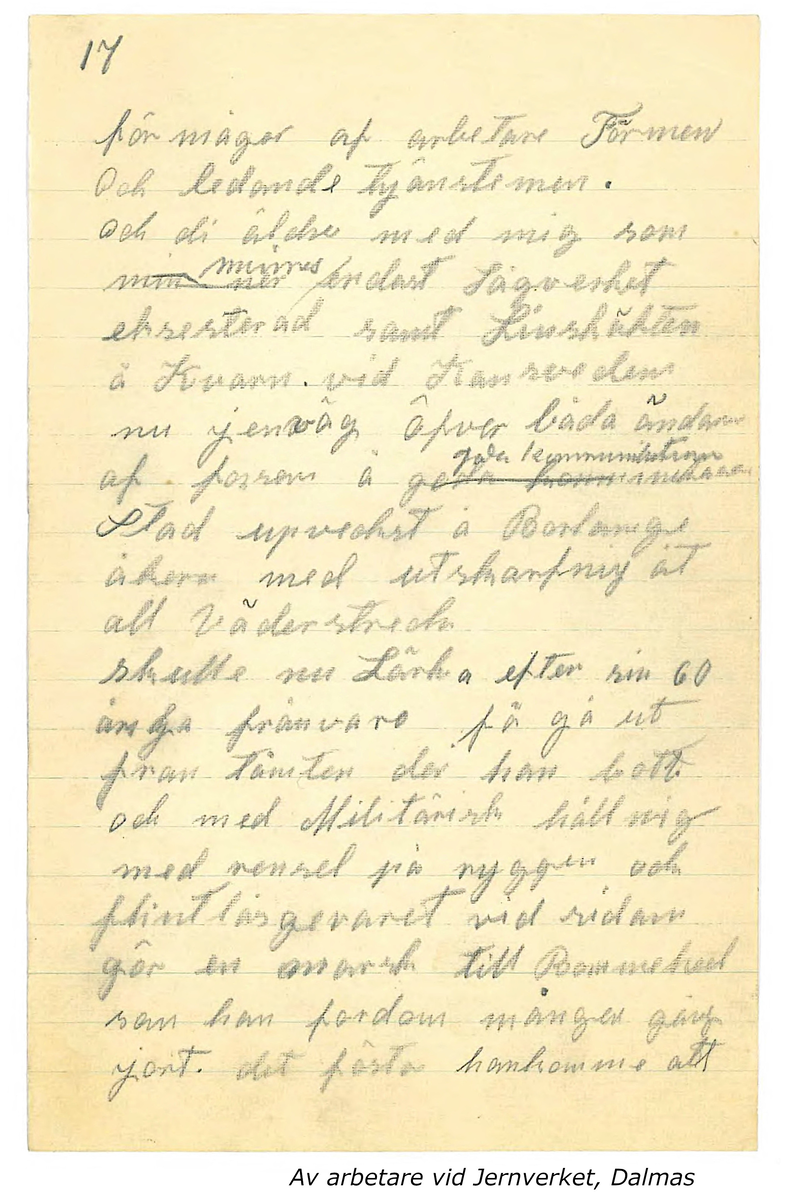 17
för mågor af arbetare Förmen
Och ledande tjänstemen.
och di äldre med mig som
minnes
min ner endast Sågverket
eksesterad samt Linskäkten
å Kvarn. vid Kansvedens
nu jenväg öfver båda ändar
goda kommunikationer
af forsen å goda
Stad upveckst å Borlänge
åkern med utskarfnig åt
all Väderstreck
skulle nu Lärka efter sin 60
åriga frånvaro få gå ut
fran tämten der han bott.
och med Militärisk hållnig
med rensel på ryggen och
flintlåsgevaret vid sidan
gör en marsh till Rommehed
som han fordom mången gång
jort. det fösta hankomme att
Av arbetare vid Jernverket, Dalmas